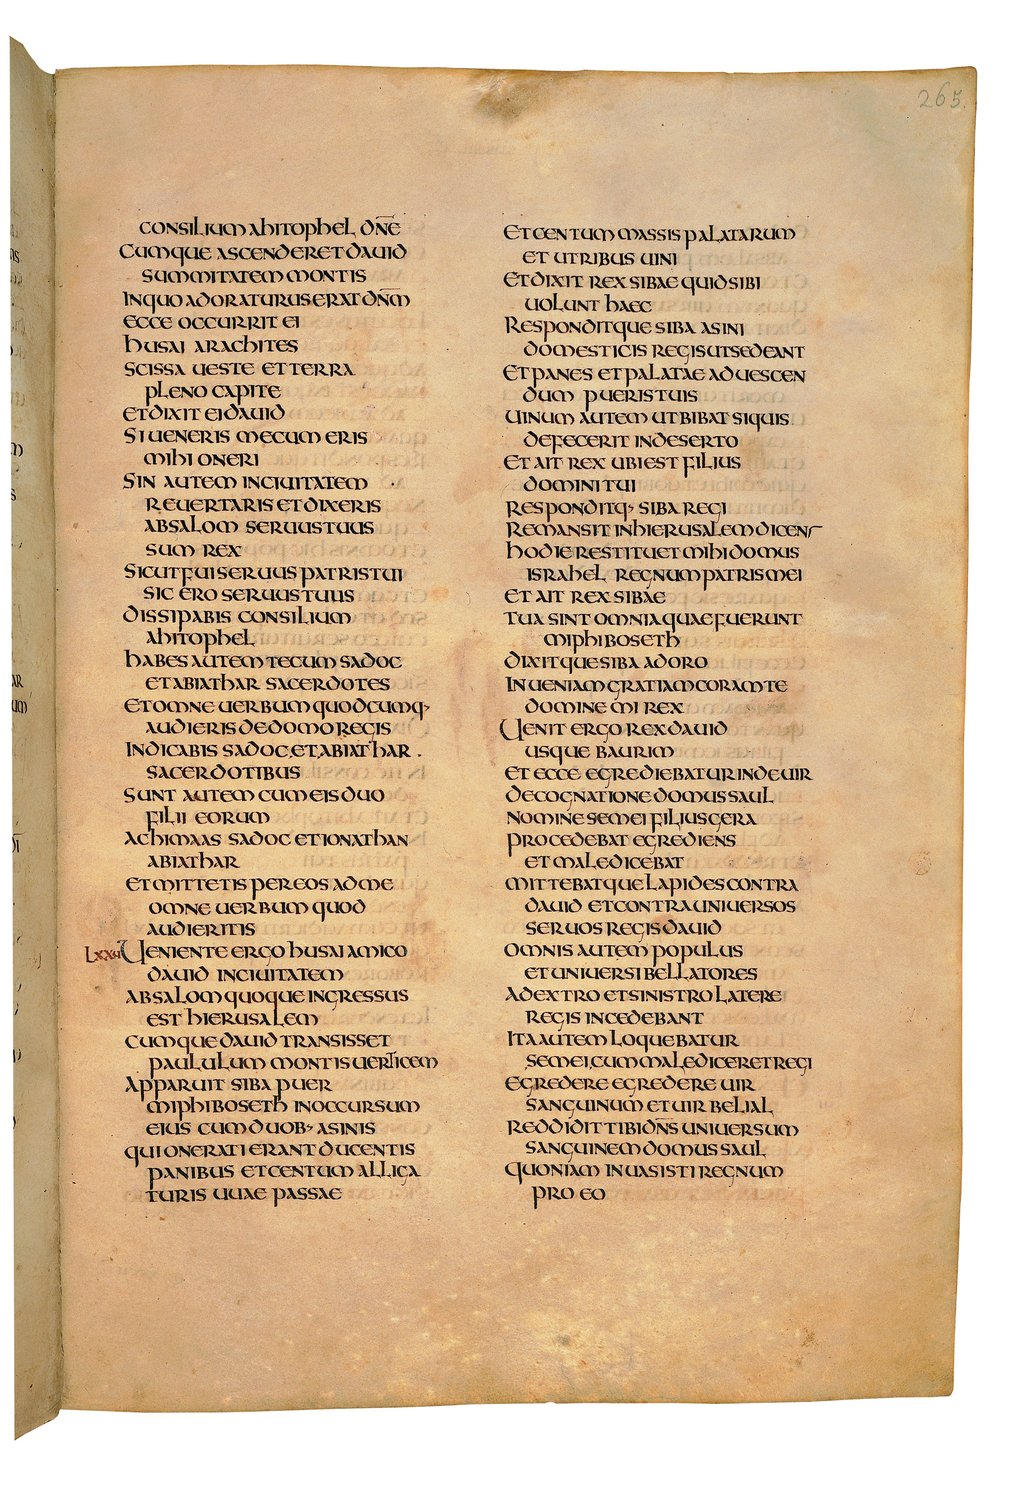 265.
CONSILIUM AHITOPHEL DN̄E
CUMQUE ASCENDERET DAUID
SUMMITATEM MONTIS
IN QUO ADORATURUS ERAT DN̄M
ECCE OCCURRIT EI
HUSAI ARACHITES
SCISSA UESTE ET TERRA
PLENO CAPITE
ET DIXIT EI DAUID
SI UENERIS MECUM ERIS
MIHI ONERI
SIN AUTEM IN CIUITATEM
REUERTARIS ET DIXERIS
ABSALOM SERUUS TUUS
SUM REX
SICUT FUI SERUUS PATRIS TUI
SIC ERO SERUUS TUUS
DISSIPABIS CONSILIUM
AHITOPHEL
HABES AUTEM TECUM SADOC
ET ABIATHAR SACERDOTES
ET OMNE UERBUM QUODCUMQ·
AUDIERIS DE DOMO REGIS
INDICABIS SADOC ET ABIATHAR
SACERDOTIBUS
SUNT AUTEM CUM EIS DUO
FILII EORUM
ACHIMAAS SADOC ET IONATHAN
ABIATHAR
ET MITTETIS PER EOS AD ME
OMNE UERBUM QUOD
AUDIERITIS
UENIENTE ERGO HUSAI AMICO
DAUID IN CIUITATEM
ABSALOM QUOQUE INGRESSUS
EST HIERUSALEM
CUMQUE DAUID TRANSISSET
PAULULUM MONTIS UERTICEM
APPARUIT SIBA PUER
MIPHIBOSETH IN OCCURSUM
EIUS CUM DUOB· ASINIS
QUI ONERATI ERANT DUCENTIS
PANIBUS ET CENTUM ALLIGA
TURIS UUAE PASSAE
ET CENTUM MASSIS PALATARUM
ET UTRIBUS UINI
ET DIXIT REX SIBAE QUID SIBI
UOLUNT HAEC
RESPONDITQUE SIBA ASINI
DOMESTICIS REGIS UT SEDEANT
ET PANES ET PALATAE AD UESCEN
DUM PUERIS TUIS
UINUM AUTEM UT BIBAT SIQUIS
DEFECERIT IN DESERTO
ET AIT REX UBI EST FILIUS
DOMINI TUI
RESPONDITQ· SIBA REGI
REMANSIT IN HIERUSALEM DICENS
HODIE RESTITUET MIHI DOMUS
ISRAHEL REGNUM PATRIS MEI
ET AIT REX SIBAE
TUA SINT OMNIA QUAE FUERUNT
MIPHIBOSETH
DIXITQUE SIBA ADORO
INUENIAM GRATIAM CORAM TE
DOMINE MI REX
UENIT ERGO REX DAUID
USQUE BAURIM
ET ECCE EGREDIEBATUR INDE UIR
DE COGNATIONE DOMUS SAUL
NOMINE SEMEI FILIUS GERA
PROCEDEBAT EGREDIENS
ET MALEDICEBAT
MITTEBATQUE LAPIDES CONTRA
DAUID ET CONTRA UNIUERSOS
SERUOS REGIS DAUID
OMNIS AUTEM POPULUS
ET UNIUERSI BELLATORES
A DEXTRO ET SINISTRO LATERE
REGIS INCEDEBANT
ITA AUTEM LOQUEBATUR
SEMEI CUM MALEDICERET REGI
EGREDERE EGREDERE UIR
SANGUINUM ET UIR BELIAL
REDDIDIT TIBI DN̄S UNIUERSUM
SANGUINEM DOMUS SAUL
QUONIAM INUASISTI REGNUM
PRO EO